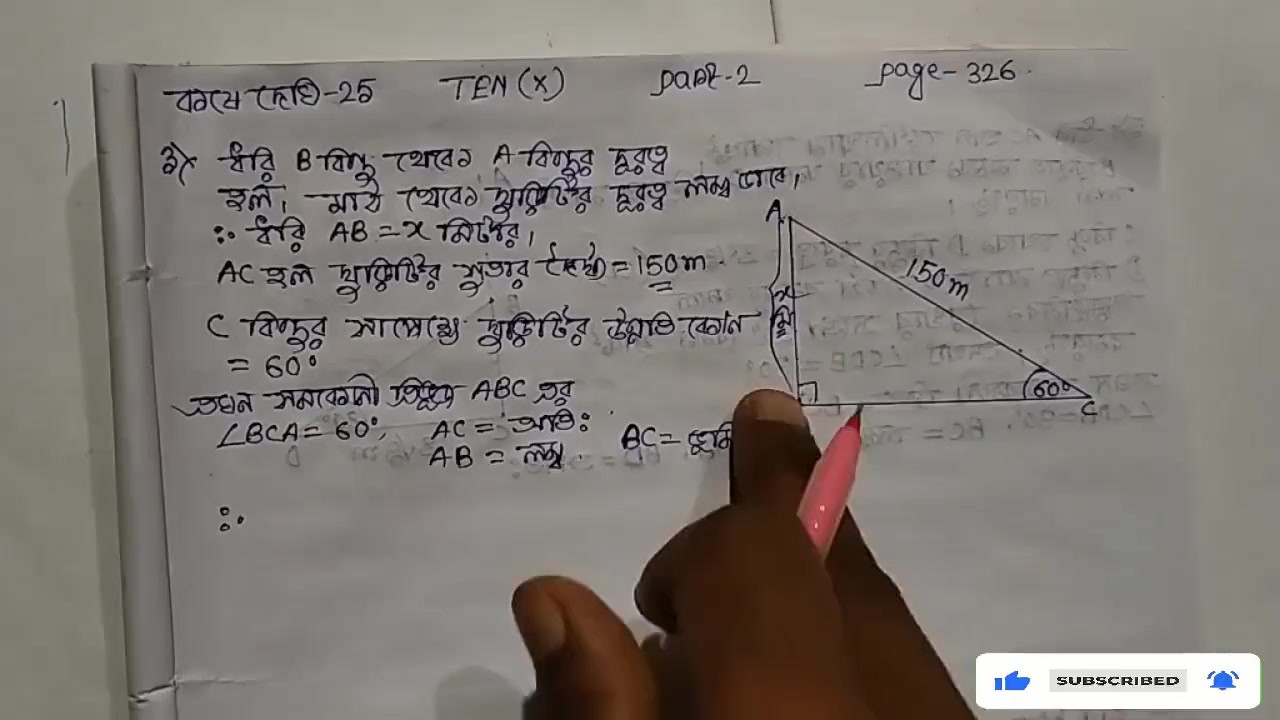 কষে দেখি-25 TEN (X) part-2 page-326.
3) ধরি B বিন্দু থেকে A বিন্দুর দূরত্ব
হল, মাঠ থেকে ঘুড়িটির দূরত্ব লম্ব ভাবে,
∴ ধরি AB = x মিটার,
AC হল ঘুড়িটির সুতার দৈর্ঘ্য = 150m
C বিন্দুর সাপেক্ষে ঘুড়িটির উন্নতি কোন
= 60°
এখন সমকোণী ত্রিভুজ ABC এর
∠BCA = 60°, AC = অতিঃ
AB = লম্ব. BC = ভূমি
∴
A
150m
x মিঃ
60°
C
SUBSCRIBED